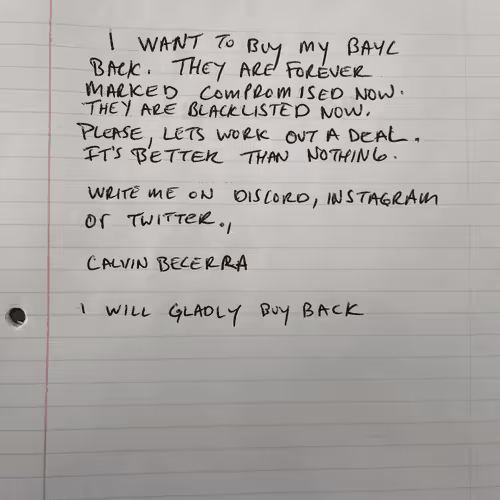 I WANT TO BUY MY BAYC
BACK. THEY ARE FOREVER
MARKED COMPROMISED NOW.
THEY ARE BLACKLISTED NOW.
PLEASE, LETS WORK OUT A DEAL.
IT'S BETTER THAN NOTHING.
WRITE ME ON DISCORD, INSTAGRAM
Or TWITTER.,
CALVIN BECERRA
I WILL GLADLY BUY BACK